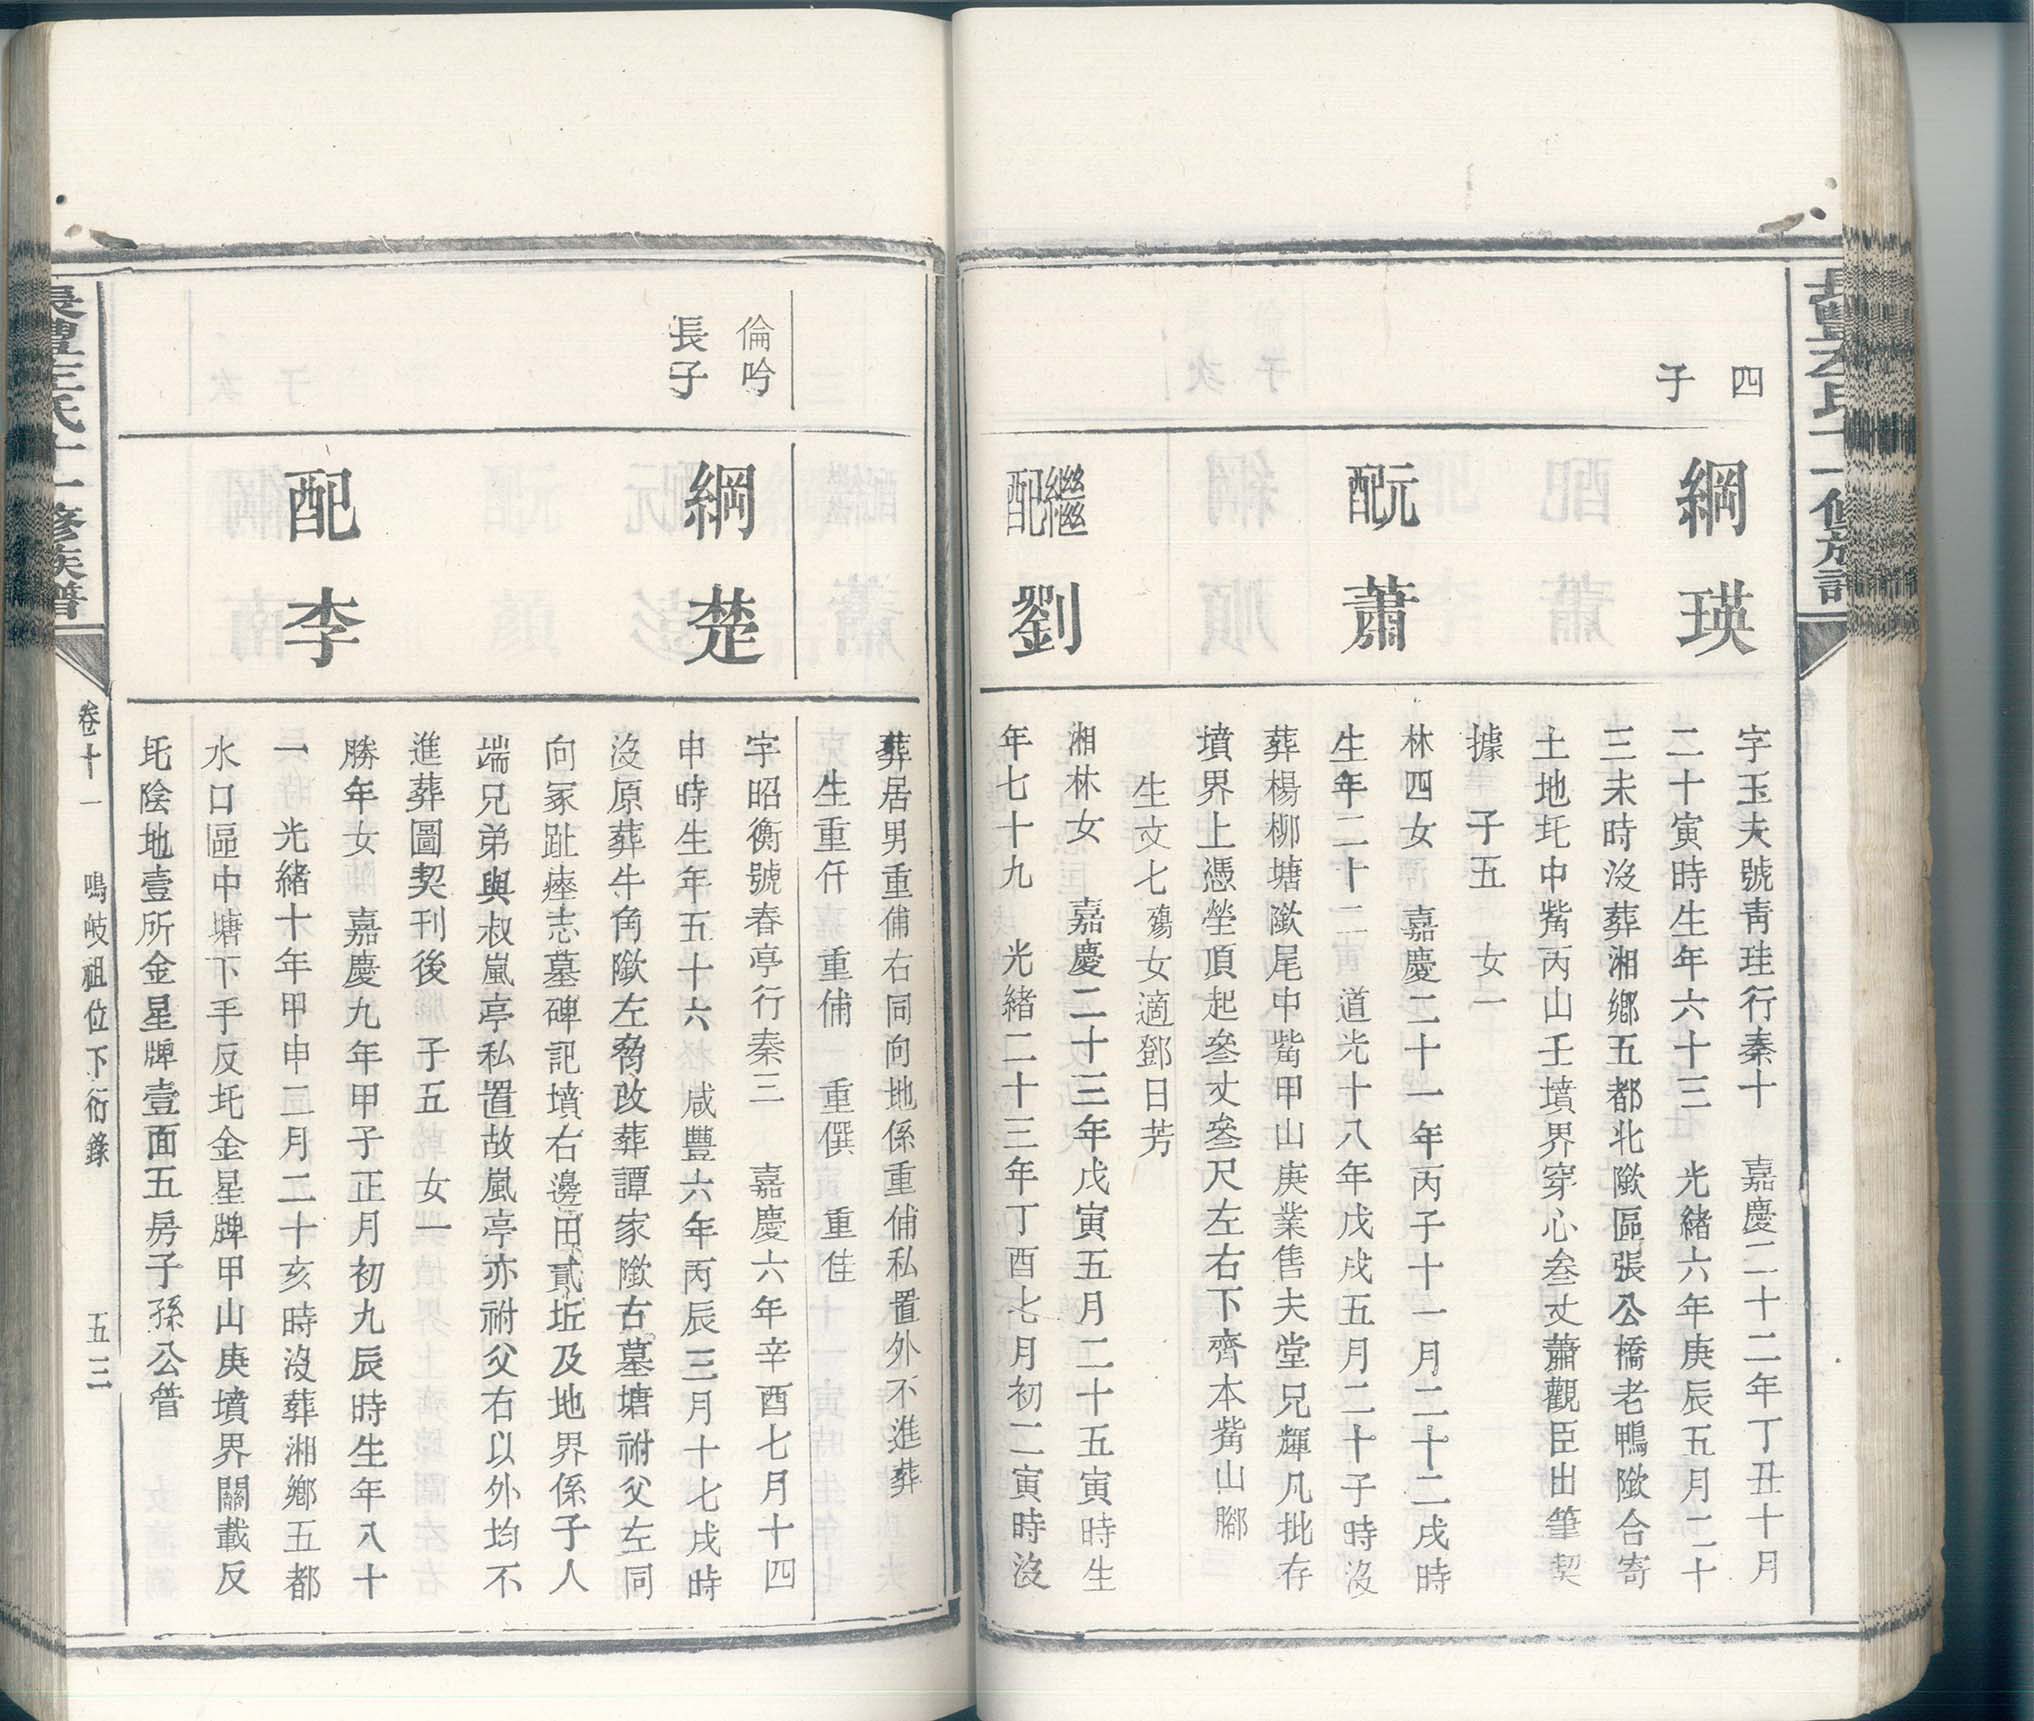 四
子
綱瑛
字玉夫號青珪行秦十　嘉慶二十二年丁丑十月
二十寅時生年六十三　光緒六年庚辰五月二十
三未時沒葬湘鄉五都北歘區張公橋老鴨歘合寄
土地圫中觜丙山壬墳界穿心叁丈蕭觀臣出筆契
據　子五　女一
元配蕭
林四女　嘉慶二十一年丙子十一月二十二戌時
生年二十二　道光十八年戊戌五月二十子時沒
葬楊柳塘歘尾中觜甲山庚業售夫堂兄輝凡批存
墳界上憑塋頂起叄丈叄尺左右下齊本觜山腳
生文七殤女適鄧日芳
繼配劉
湘林女　嘉慶二十三年戊寅五月二十五寅時生
年七十九　光緒二十三年丁酉七月初二寅時沒
葬居男重俌右同向地係重俌私置外不進葬
生重仟　重俌　重僎　重佳
倫吟
長子
綱楚
字昭衡號春亭行秦三　嘉慶六年辛酉七月十四
申時生年五十六　咸豐六年丙辰三月十七戌時
沒原葬牛角歘左脅改葬譚家歘古墓塘祔父左同
向冢趾瘞志墓碑記墳右邊田貳坵及地界係子人
端兄弟與叔嵐亭私置故嵐亭亦祔父右以外均不
進葬圖契刊後　子五　女一
配李
勝年女　嘉慶九年甲子正月初九辰時生年八十
一　光緒十年甲申二月二十亥時沒葬湘鄉五都
水口區中塘下手反圫金星牌甲山庚墳界關載反
圫陰地壹所金星牌壹面五房子孫公管
氏十一修族譜
卷十一　鳴岐祖位下衍錄　五三